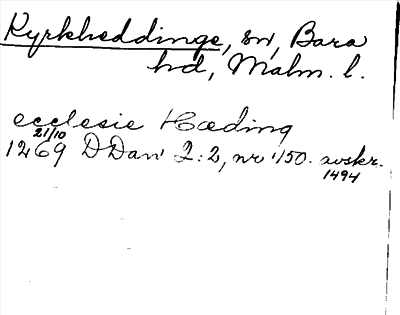 Kyrkheddinge, sn, Bara
hd, Malm. l.
ecclesie Hæding
21/10
1269 DDan 2:2, nr 150. avskr.
1494